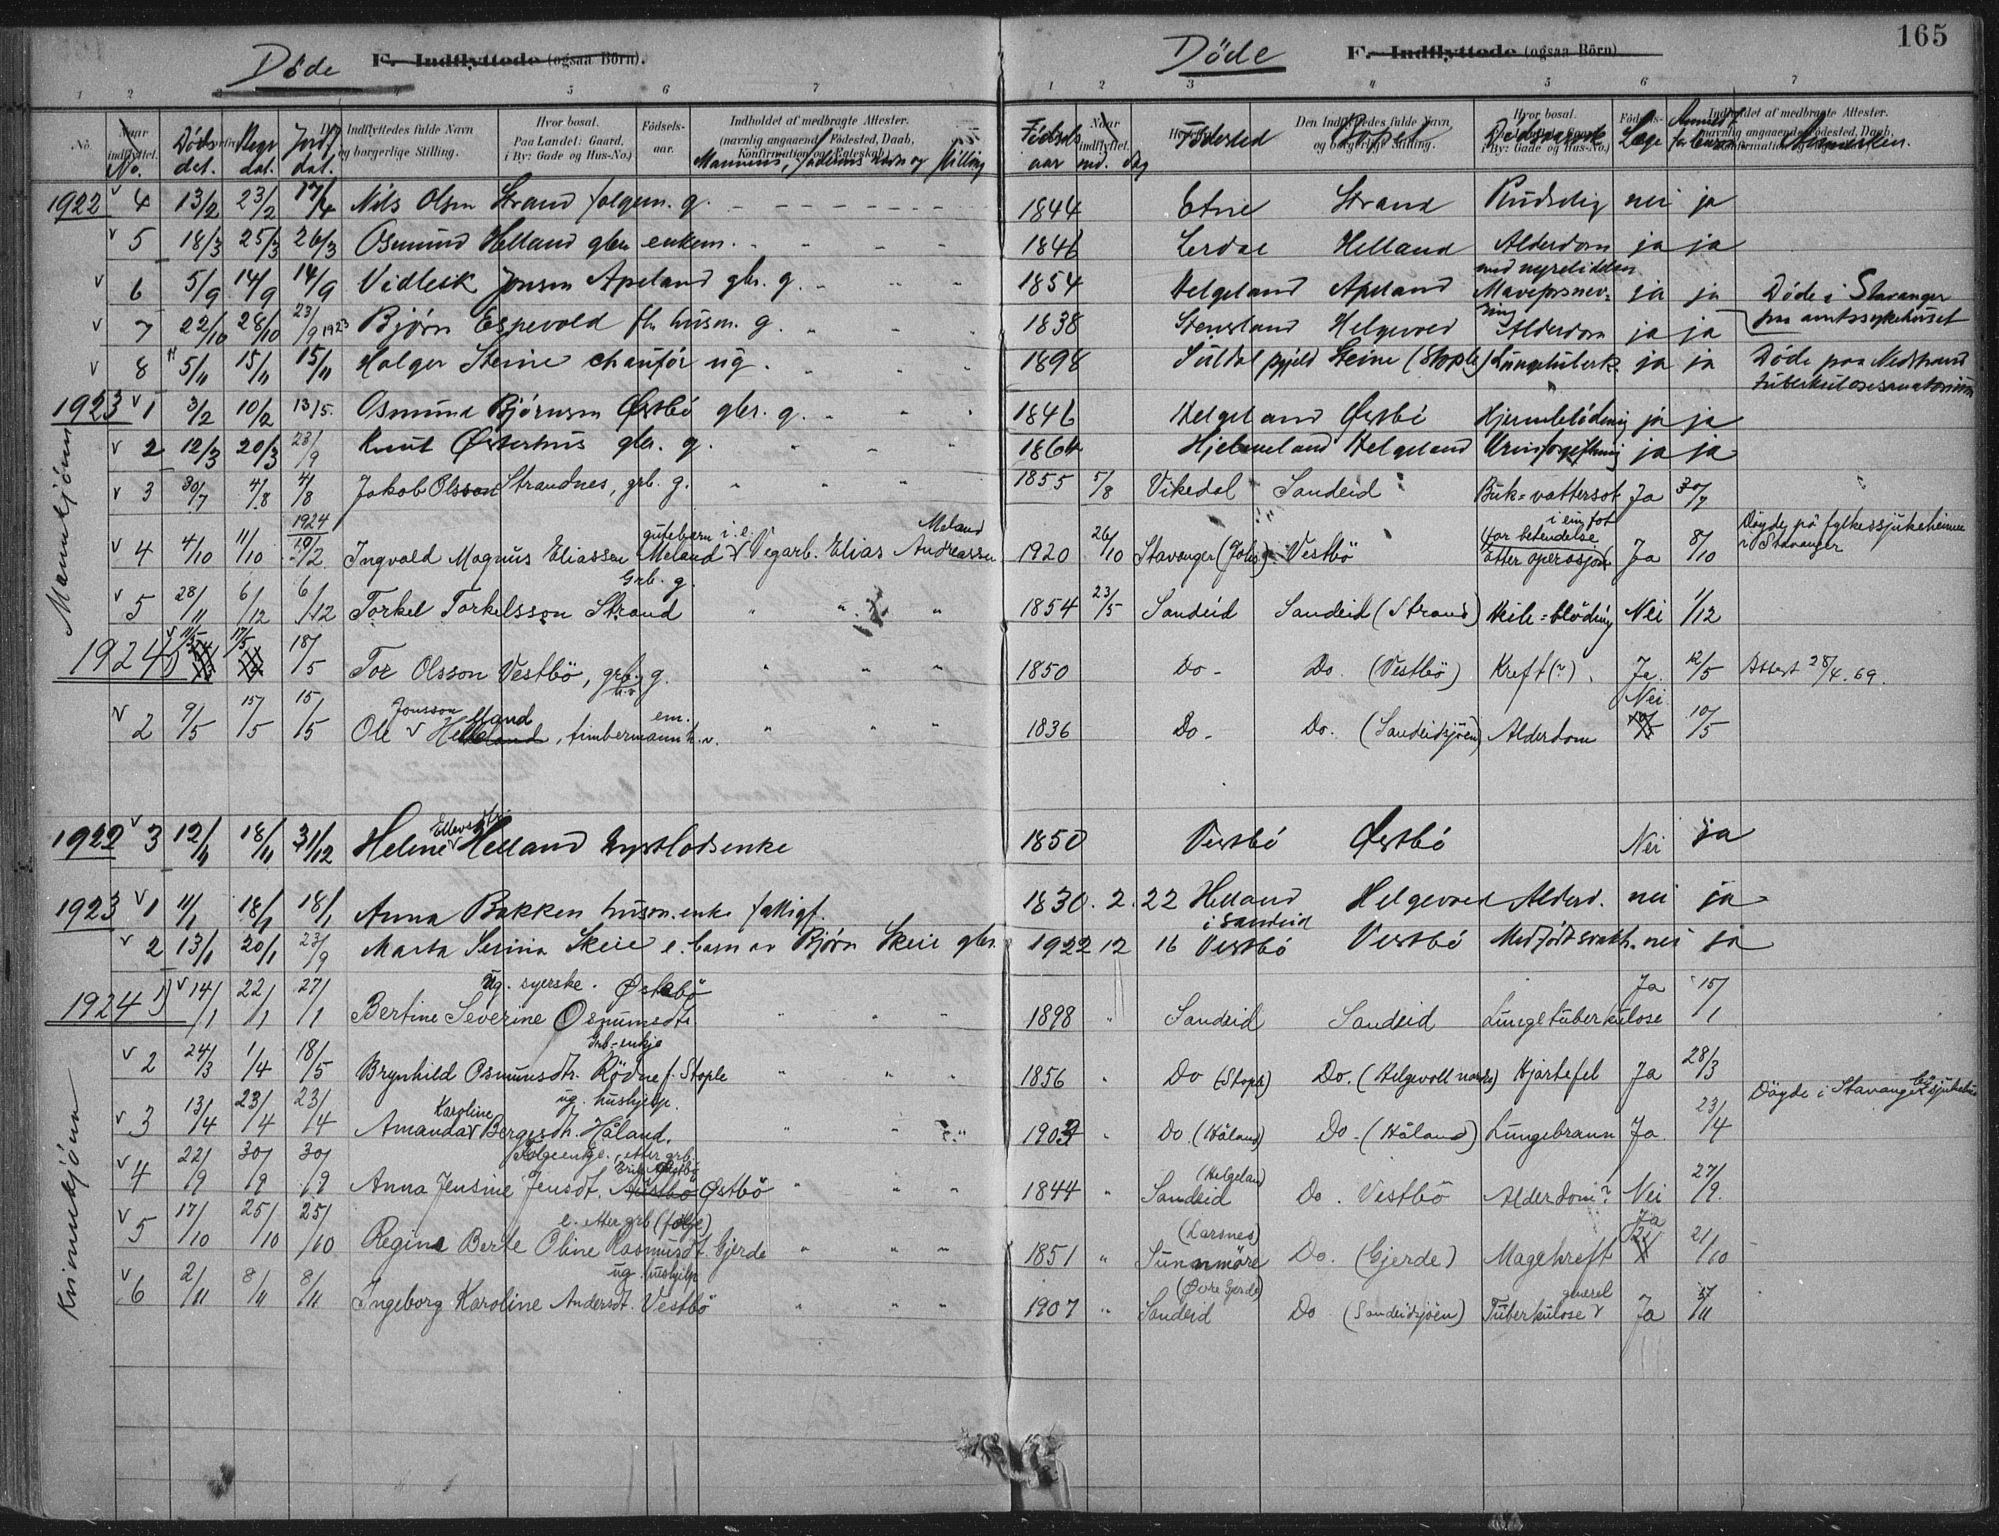 165
Døde F. Indflyttede (ogsaa Börn).
Døde F. Indflyttede (ogsaa Börn)
1 2 3 4 5 6 7
1 2 3 4 5 6 7
No. Naar indflyttet. Den Indflyttedes fulde Navn og borgerlige Stilling. Hvor bosat. Paa Landet: Gaard. i By: Gade og Hus-No.) Födsels-aar. Indholdet af medbragte Attester. (navnlig angaaende Födested, Daab, Konfirmation og
No. Døds dat. Begr dat. Jordf dat. Mannens, faderns navn og stilling
Fødsels aar md. dag Födested Bopel Dödsaarsak Læge Anmeldt
1922 4 13/2 23/2 17/4 Nils Olsen Strand folgem. g. 1844 Etne Strand nei ja
5 18/3 25/3 26/3 Osmund Helland gbr. enkem. 1846 Helland Alderdom ja ja
6 5/9 14/9 14/9 Vidlesk Jonsen Apeland gbr. g. 1854 Helgeland Apeland ja ja Døde i Stavanger
7 22/10 28/10 23/9 1923 Bjørn Espevold fh. husm. g. 1838 Helgevold Alderdom ja ja paa amtssykehuset
8 5/11 15/11 15/11 Holger Steine chauför ug. 1898 Suldal Steine (Stople) Lungetuberk. ja ja Døde paa Nedstrand
tuberkulosesanatorium
1923 1 3/2 10/2 13/5. Osmund Bjørnsen Østbö gbr. g. 1846 Helgeland Østbö Hjernebløding ja ja
2 12/3 20/3 23/9 Knut Østerhus gbr. g. 1864 Hjelmeland Helgeland Urinforgiftning ja ja
Mannkjönn
3 30/7 4/8 4/8 Jakob Olsson Strandnes, grb. g. 1855 5/8 Vikedal Sandeid Buk-vattersot Ja 30/7
4 4/10 11/10 1924 10/2 Ingvald Magnus Eliassen Meland Vegarb. Elias Andreassen Meland 1920 26/10 Stavanger Vestbö Etter operasjon for betendelse i ein fot Ja 8/10 Döyde på fylkessjukeheimen
Stavanger
5 28/11 6/12 6/12 Torkel Torkelsson Strand Grb. g. 1854 23/5 Sandeid Sandeid (Strand) Heile-blöding Nei 1/12
1924 11/5 17/5 18/5 Tor Olsson Vestbö, grb. g. 1850 Do- Do (Vestbö) Kreft (?). Ja 12/5 Attest 28/4.69.
2 9/5 15/5 15/5 Ole Jonsson Helland, timbermann em. 1836 Do- Do. (Sandeidsjöen) Alderdom Nei 10/5
1922 3 12/11 18/11 31/12 Helene Ellevsdtr Helland 1850 Vestbö Østbö Nei ja
1923 1 11/1 18/1 18/1 Anna Bakken husm.enke fattigf. 1830. 2. 22 Helland i Sandeid Helgevold Alderd. nei ja
2 13/1 20/1 23/9 Marta Serina Skeie e. barn av Bjørn Skeie gbr. 1922 12 16 Vestbö Vestbö Medfødt svakh. nei ja
1924 1) 14/1 22/1 27/1 Bertine Severine Osmundsdtr. ug. syerske. Østebö 1898 Sandeid Sandeid Lungetuberkulose Ja 15/1
Kvinnekjönn
2 24/3 1/4 18/5 Brynhild Osmundsdtr. Rödne f. Stople Grb-enkje 1856 Do (Stople) Do. (Helgevoll nordre) Hjartefel Ja 28/3
3 13/4 23/4 23/4 Amanda Karoline Bergesdtr. Håland. ug. hushjelp. 1902 Do. (Håland) Do. (Håland) Lungebrann Ja. 23/4 Döyde i Stavanger sjukehus
4 22/9 30/9 30/9 Anna Jensine Jensdt. Østbö Folgeenke, etter grb. 1844 Sandeid (Helgeland) Do. Vestbö Alderdom? Nei 27/9.
5 17/10 25/10 25/10 Regine Berte Oline Rasmusdt. Gjerde e. etter grb. (folge) 1851 (Larsnes) Sunnmöre Do. (Gjerde) Magekreft Ja 21/10
6 2/11 8/11 8/11 Ingeborg Karoline Andersdt. Vestbö ug. hushjelp 1907 (Övre Gjerde) Sandeid Do (Sandeidsjöen) Tuberkulose Ja